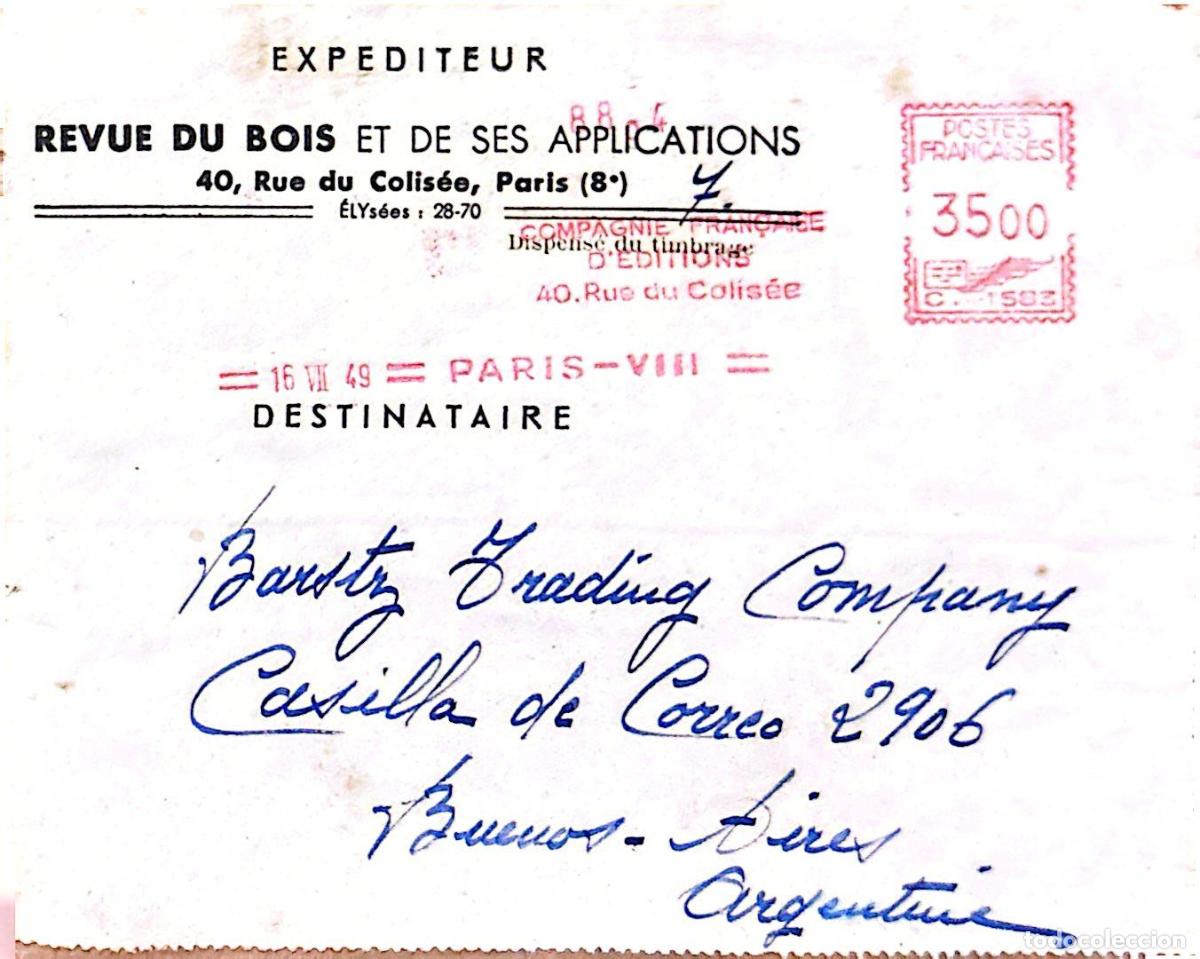 EXPEDITEUR
88.4
REVUE DU BOIS ET DE SES APPLICATIONS
40, Rue du Colisée, Paris (8ᵉ)
7.
ÉLYsées : 28-70
COMPAGNIE FRANÇAISE
Dispensé du timbrage
D'EDITIONS
40. Rue du Colisée
POSTES
FRANÇAISES
3500
C. 1583
= 16 VII 49 = PARIS-VIII =
DESTINATAIRE
Barstz Trading Company
Casilla de Correo 2906
Buenos-Aires
Argentine
todocoleccion